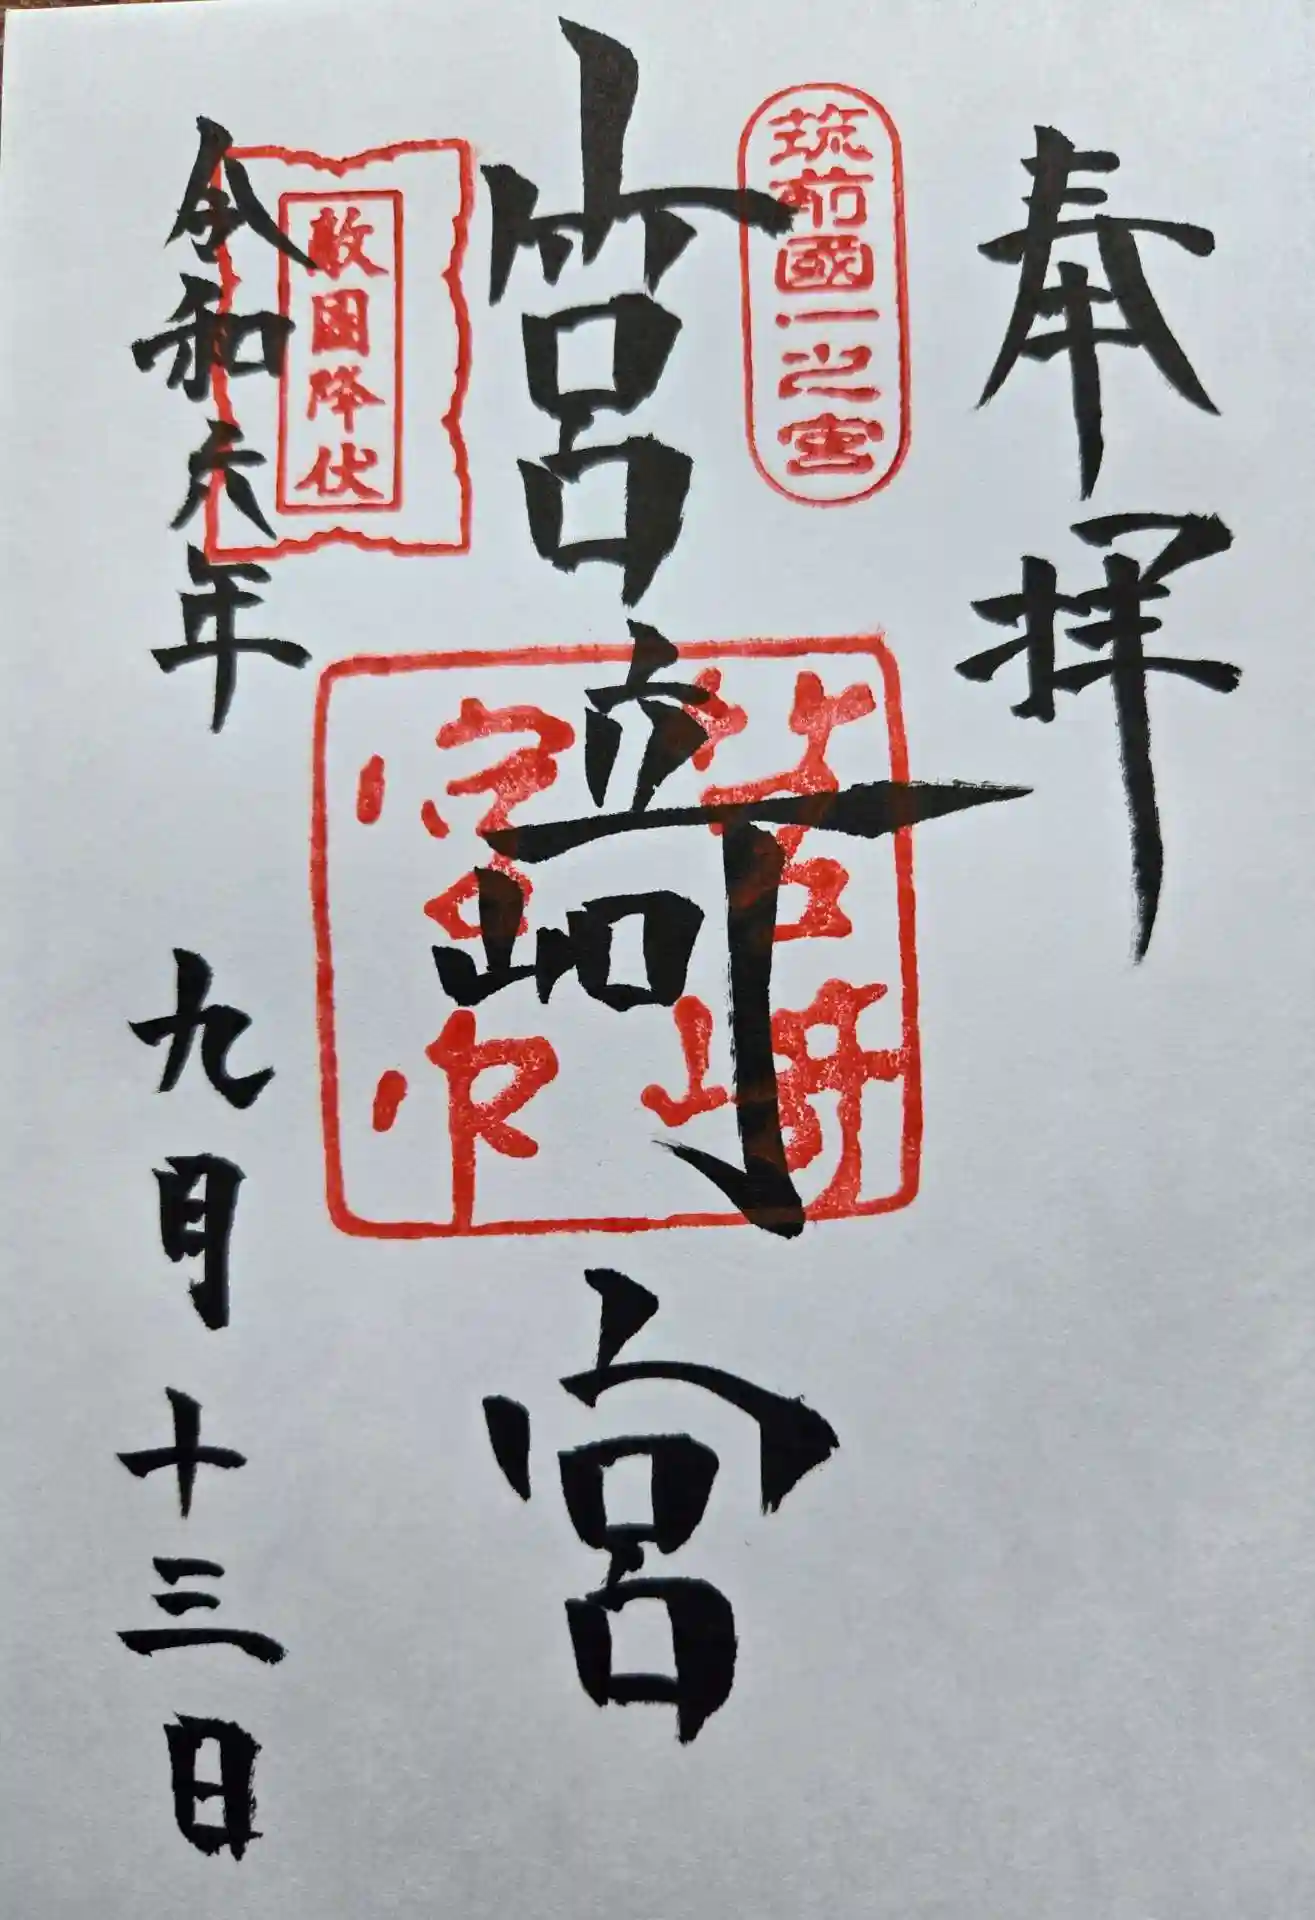 奉拝
筑前國一之宮
筥崎宮
筥崎宮印
敵国降伏
令和六年 九月十三日